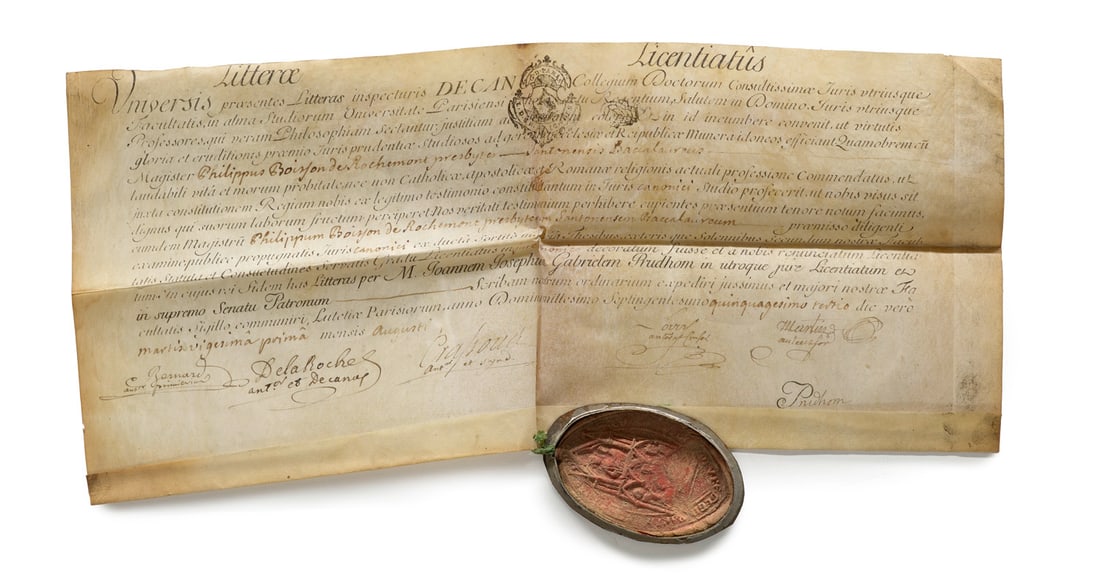 Litteræ Licentiatûs
Vniversis præsentes Litteras inspecturis DECANUS Collegium Doctorum Consultissimæ Juris vtriusque
Facultatis, in alma Studiorum Vniversitate Parisiensi Regentium, Salutem in Domino. Juris vtriusque
Professores, qui veram Philosophiam Sectantur, justitiam in id incumbere convenit, ut virtutis
gloria et eruditionis præmio Juris prudentiæ Studiosos ad Ecclesiæ et Reipublicæ Munera idoneos efficiant. Quamobrem cû
Magister Philippus Boisson de Rochemont presbyter Santonensis Baccalaureus
laudabili vitâ et morum probitate, ac non Catholicæ, Apostolicæ et Romanæ religionis actuali professione Commendatus, ut
juxta constitutionem Regiam nobis ex legitimo testimonio constitit, tantum in Juris canonici Studio profecerit, ut nobis visus sit
dignus qui suorum laborum fructum perciperet Nos veritati testimonium perhibere cupientes præsentium tenore notum facimus,
eumdem Magistrû Philippum Boisson de Rochemont presbyterum Santonensem Baccalaureum præmisso diligenti
examine publice propugnatis Juris canonici ex ductâ Sortiis Thesibus, cæteris que Solemnibus Secundum nostræ Facul
tatis Statuta et Consuetudines Servatis Gradu Licentiatus decoratum fuisse et a nobis renuntiatum Licentia-
tum: in cujus rei Fidem has Litteras per M. Joannem Josephum Gabrielem Prudhom in utroque jure Licentiatum et
in supremo Senatu Patronum Scribam nostrum ordinarium expediri jussimus et majori nostræ Fa
cultatis Sigillo communiri, Lutetiæ Parisiorum, anno Domini millesimo Septingentesimo quinquagesimo tertio die verò
martis vigesimâ primâ mensis Augusti
Bernard
DelaRoche
ant.or et Decanus
Lorry
Martin
antecessor
Prudhom